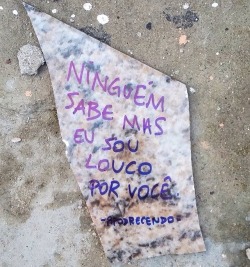 NINGUÉM
SABE MAS
EU SOU
LOUCO
POR VOCÊ
-APODRECENDO-